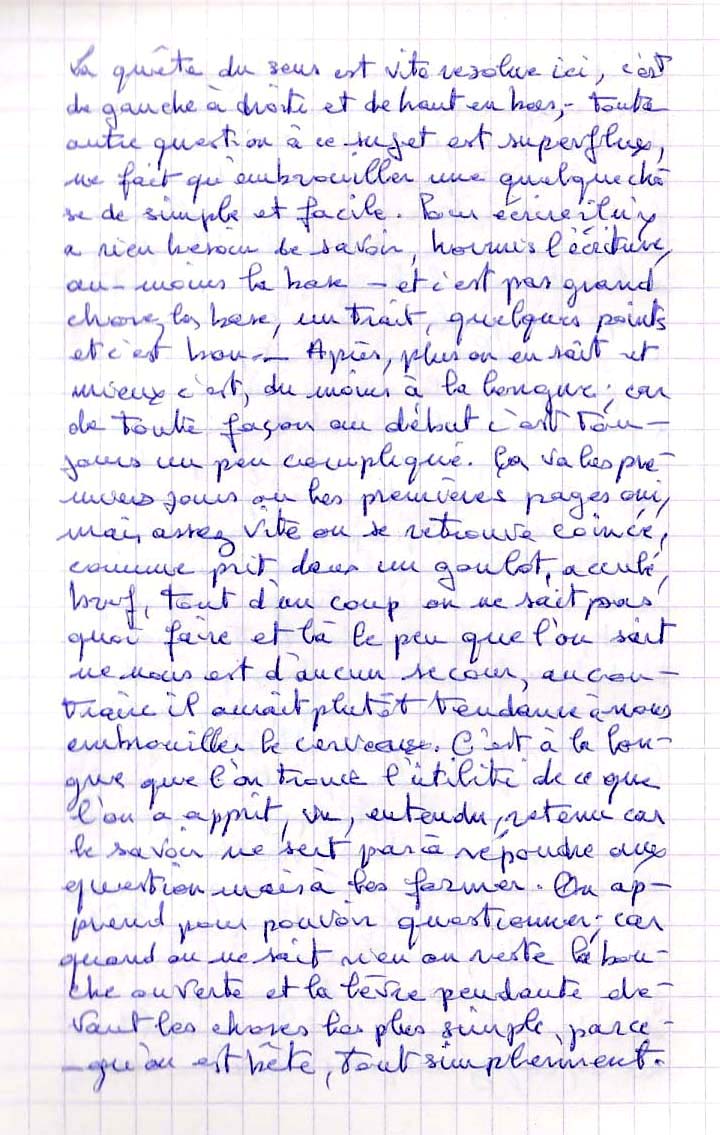 La quête du sens est vite resolue ici, c'est
de gauche à droite et de haut en bas, - toute
autre question à ce sujet est superflue,
ne fait qu'embrouiller une quelquecho
se de simple et facile. Pour écrire il n'y
a rien besoin de savoir, hormis l'écriture,
au-moins la base - et c'est pas grand
chose, la base, un trait, quelques points
et c'est bon - Après, plus on en sait et
mieux c'est, du moins à la longue ; car
de toute façon au début c'est tou-
jours un peu compliqué. Ça va les pre-
miers jours ou les premières pages oui,
mais assez vite on se retrouve coincé,
comme prit dans un goulot, acculé,
bref, tout d'un coup on ne sait pas
quoi faire et là le peu que l'on sait
ne nous est d'aucun secour, au con-
traire il aurait plutôt tendance à nous
embrouiller le cerveau. C'est à la lon-
gue que l'on trouve l'utilité de ce que
l'on a apprit, vu, entendu, retenu car
le savoir ne sert pas à répondre aux
question mais à les former. On ap-
prend pour pouvoir questionner ; car
quand on ne sait rien on reste la bou-
che ouverte et la lèvre pendante de-
vant les choses les plus simple, parce-
-qu'on est bête, tout simplement.